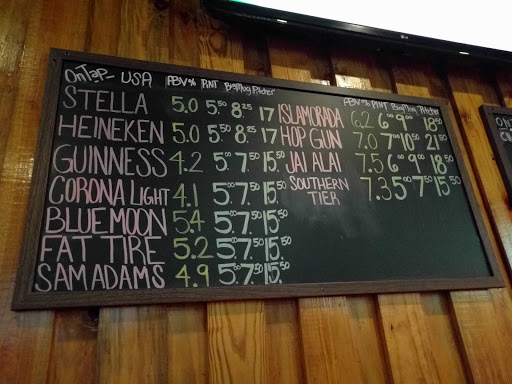 On Tap - USA ABV% PINT BigMug Pitcher
STELLA 5.0 5.50 8.25 17
HEINEKEN 5.0 5.50 8.25 17
GUINNESS 4.2 5.00 7.50 15.50
CORONA LIGHT 4.1 5.00 7.50 15.50
BLUE MOON 5.4 5.00 7.50 15.50
FAT TIRE 5.2 5.00 7.50 15.50
SAM ADAMS 4.9 5.00 7.50 15.50
ABV% PINT BigMug Pitcher
ISLAMORADA 6.2 6.00 9.00 18.50
HOP GUN 7.0 7.00 10.50 21.50
JAI ALAI 7.5 6.00 9.00 18.50
SOUTHERN 7.3 5.00 7.50 15.50
TIER
LG